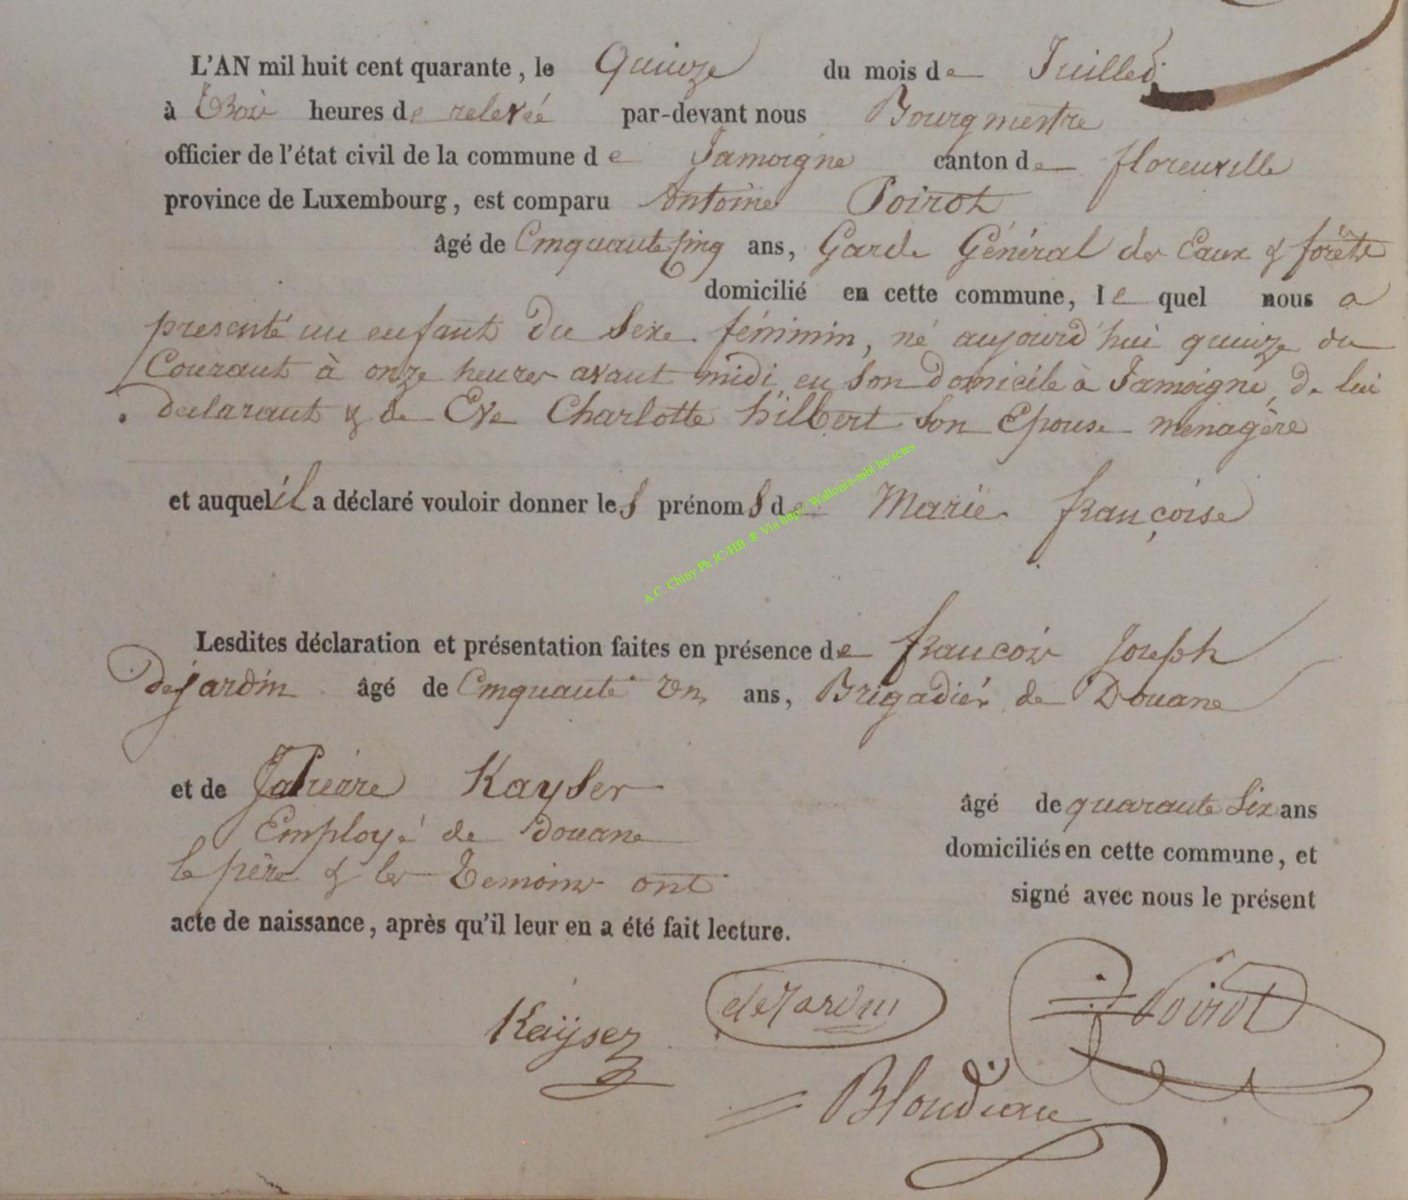 L'AN mil huit cent quarante, le Quinze du mois de Juillet
à Trois heures de relevée par-devant nous Bourgmestre
officier de l'état civil de la commune de Jamoigne canton de florenville
province de Luxembourg, est comparu Antoine Poirot
âgé de Cinquante cinq ans, Garde Général des Eaux & forêts
domicilié en cette commune, lequel nous a
presenté un enfant du Sexe féminin, né aujourd'hui quinze du
Courant à onze heures avant midi en son Domicile à Jamoigne, de lui
declarant & de Eve Charlotte hilbert Son Epouse menagère
et auquel il a déclaré vouloir donner les prénoms de Marie françoise
A.C. Chiny Ph JC/HB ® Via http: Wallonia-asbl.be/actes
Lesdites déclaration et présentation faites en présence de francois Joseph
Dejardin âgé de Cinquante un ans, Brigadier de Douane
et de Pierre Kayser âgé de quarante Six ans
Employé de Douane domiciliés en cette commune, et
le père & les Temoins ont signé avec nous le présent
acte de naissance, après qu'il leur en a été fait lecture.
Kaÿser dejardin Poirot
Blondiau